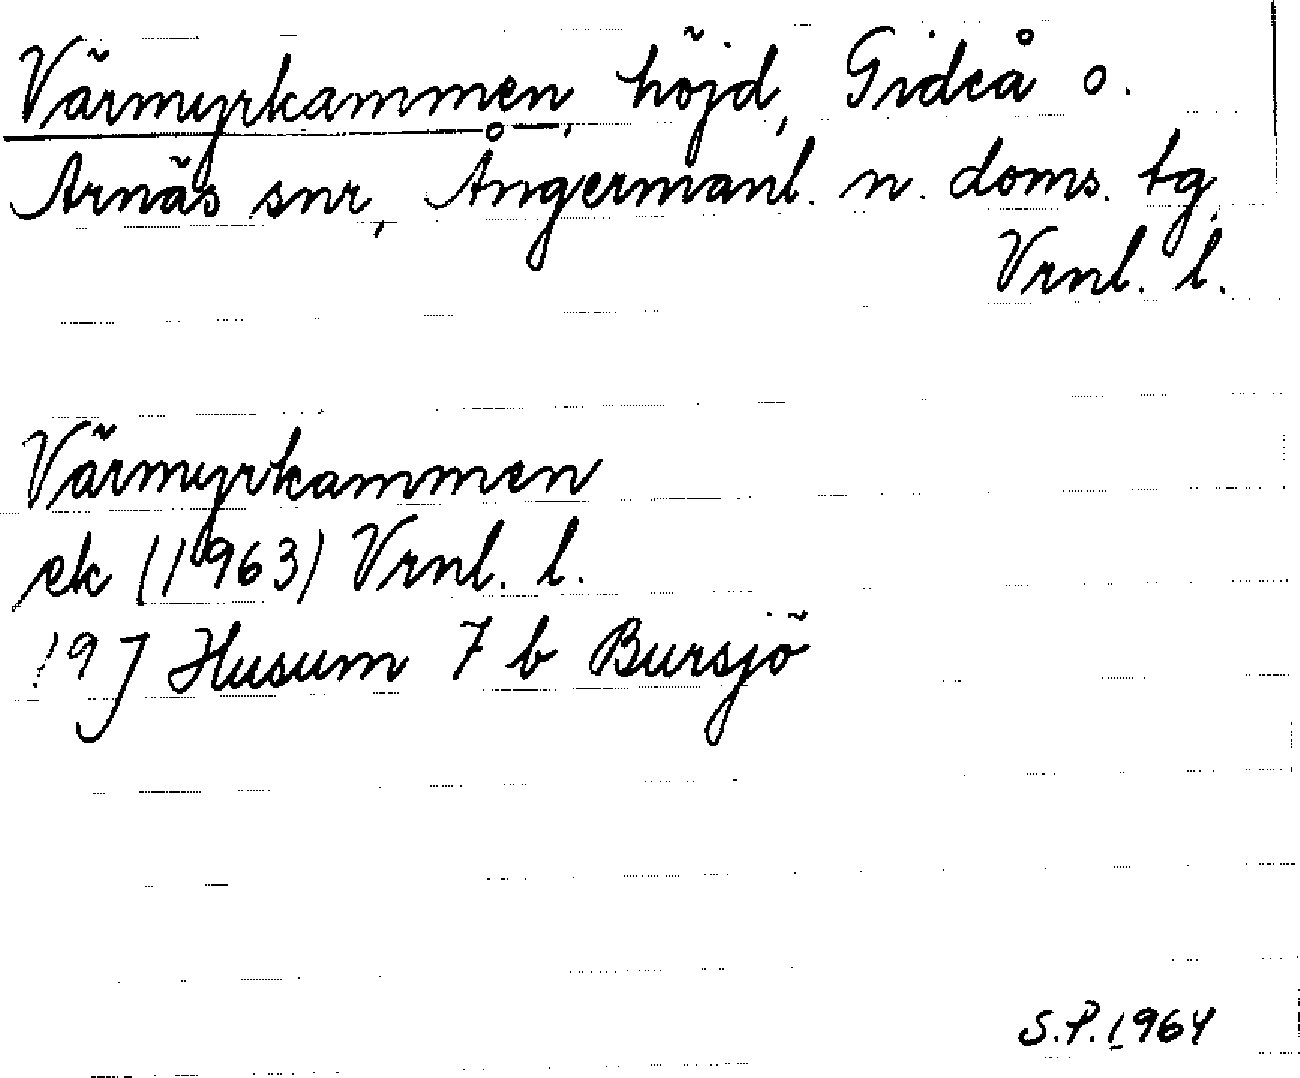 Värmyrkammen, höjd, Gideå o.
Arnäs snr, Ångermanl. n. doms. tg,
Vrnl. l.
Värmyrkammen
ek (1963) Vrnl. l.
19 J Husum 7 b Bursjö
S.P. 1964